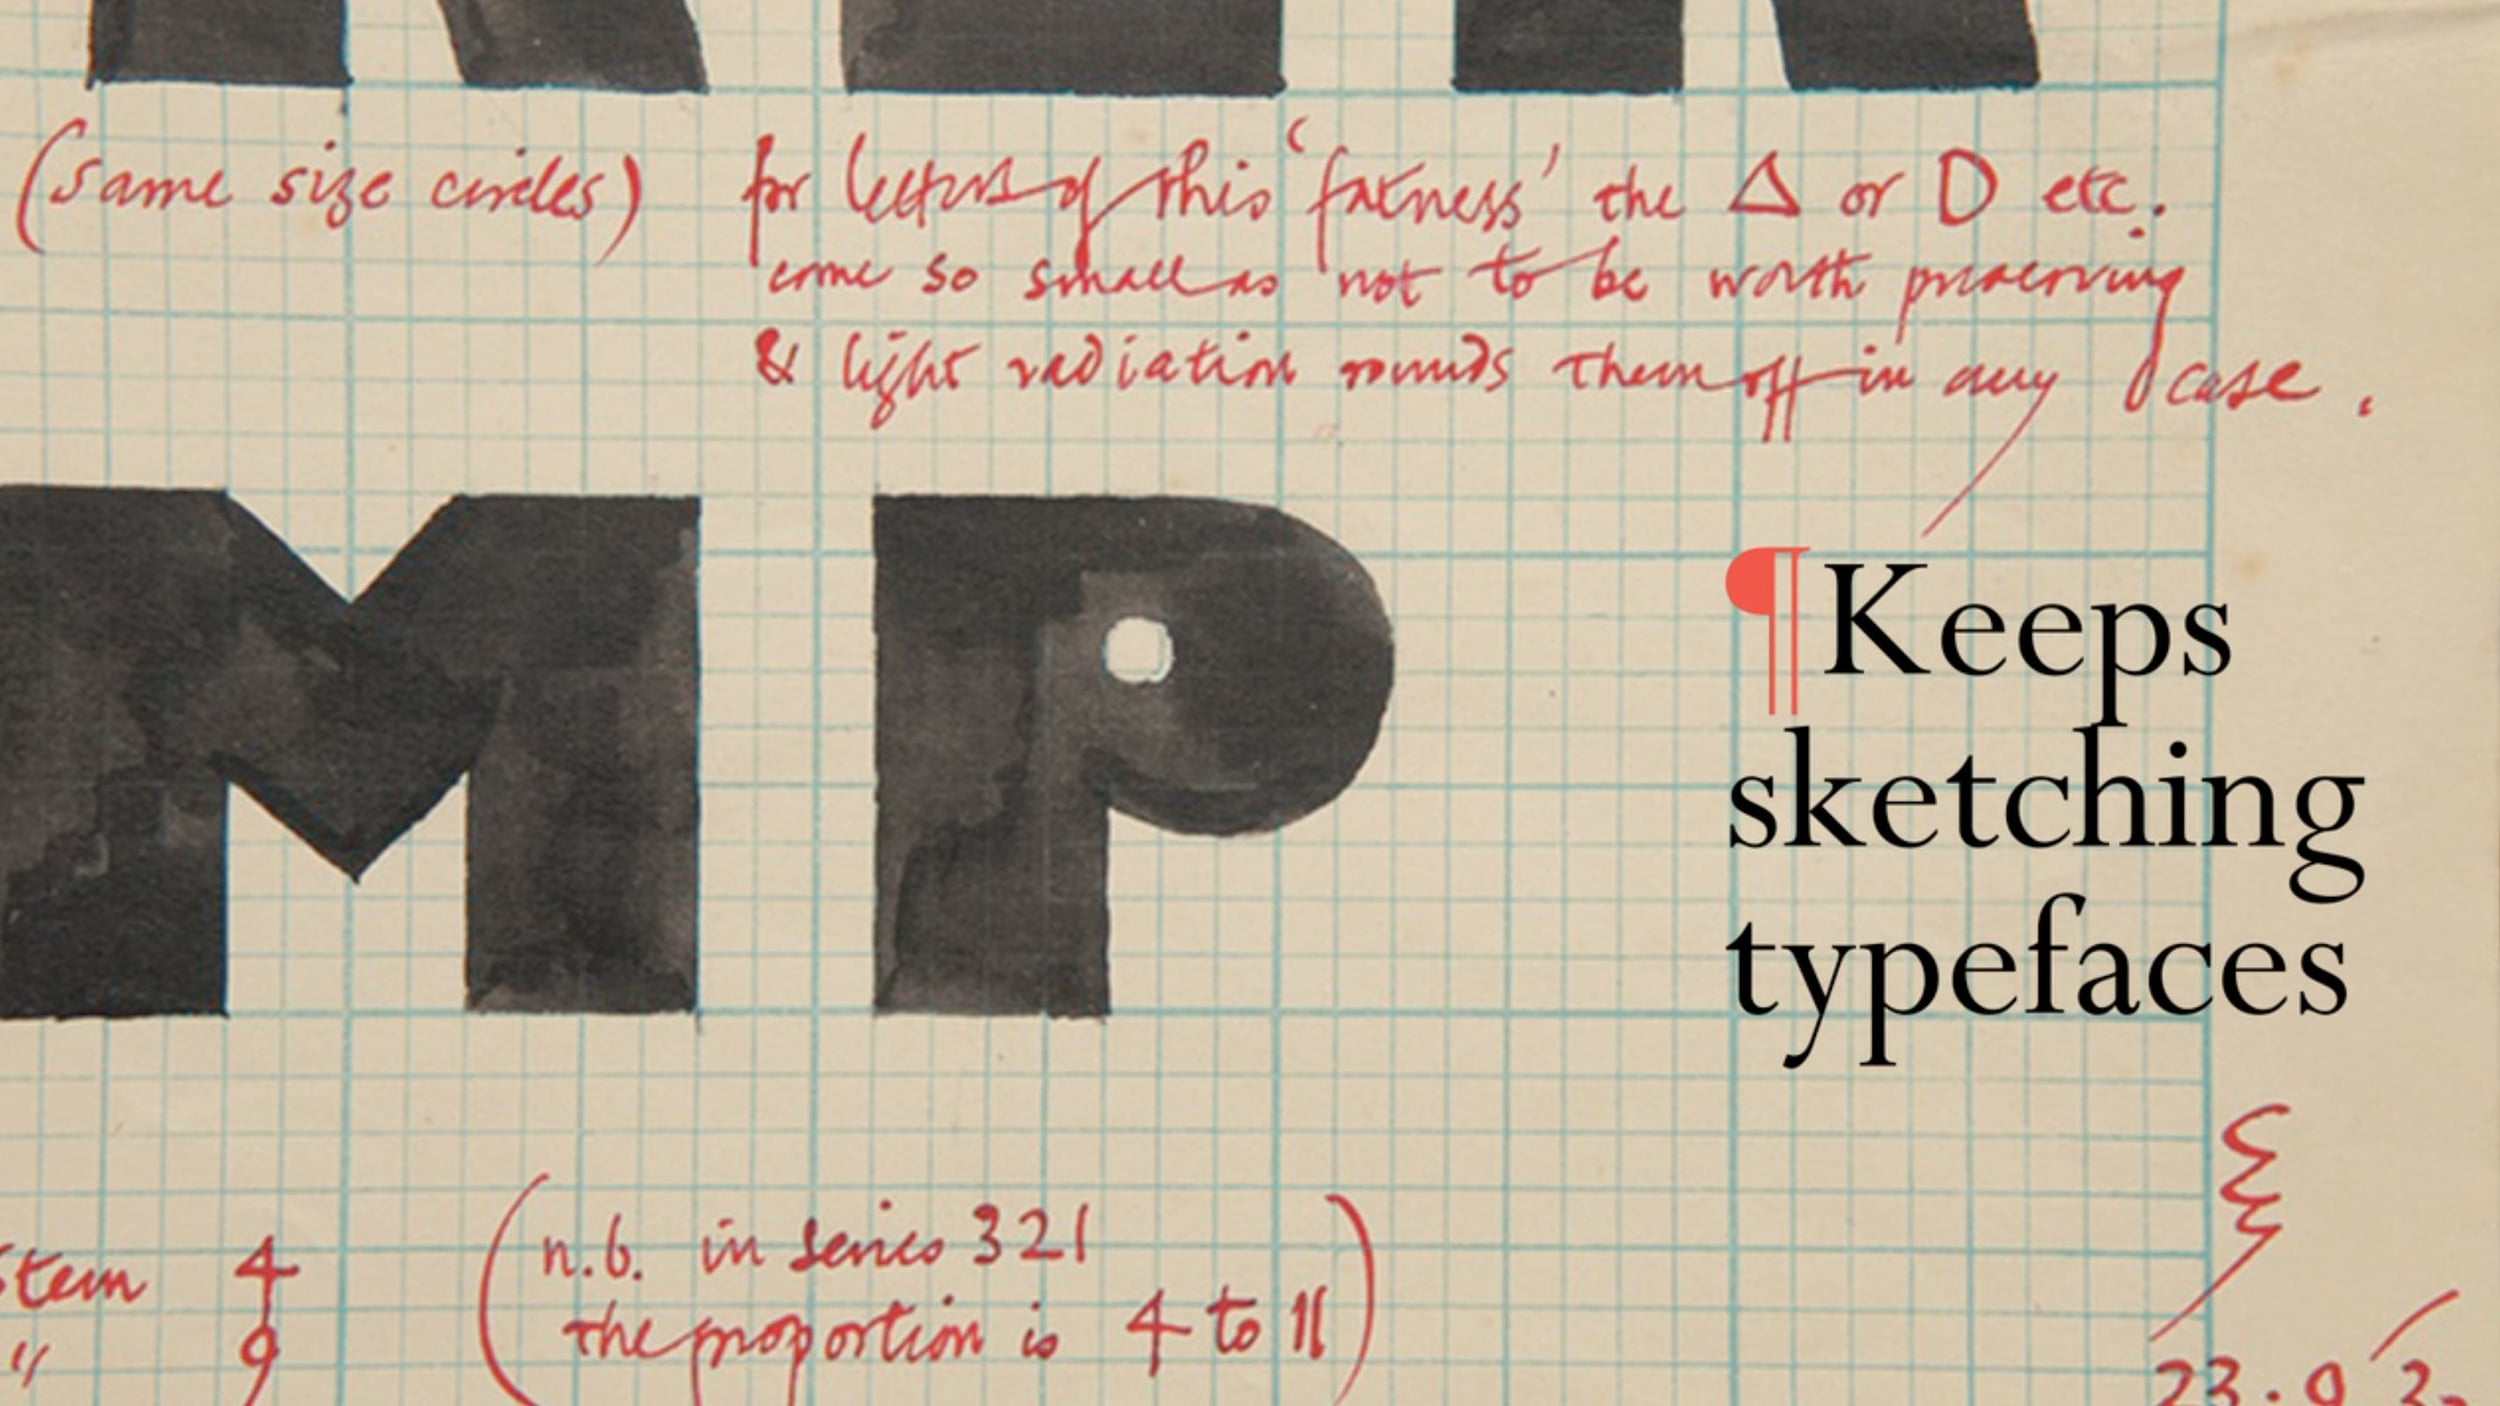 (same size circles) for letters of this 'fatness' the Δ or D etc.
come so small as not to be worth preserving
& light radiation rounds them off in any case.
MP
¶Keeps
sketching
typefaces
stem 4
" 9
(n.b. in series 321
the proportion is 4 to 11)
23.9.3